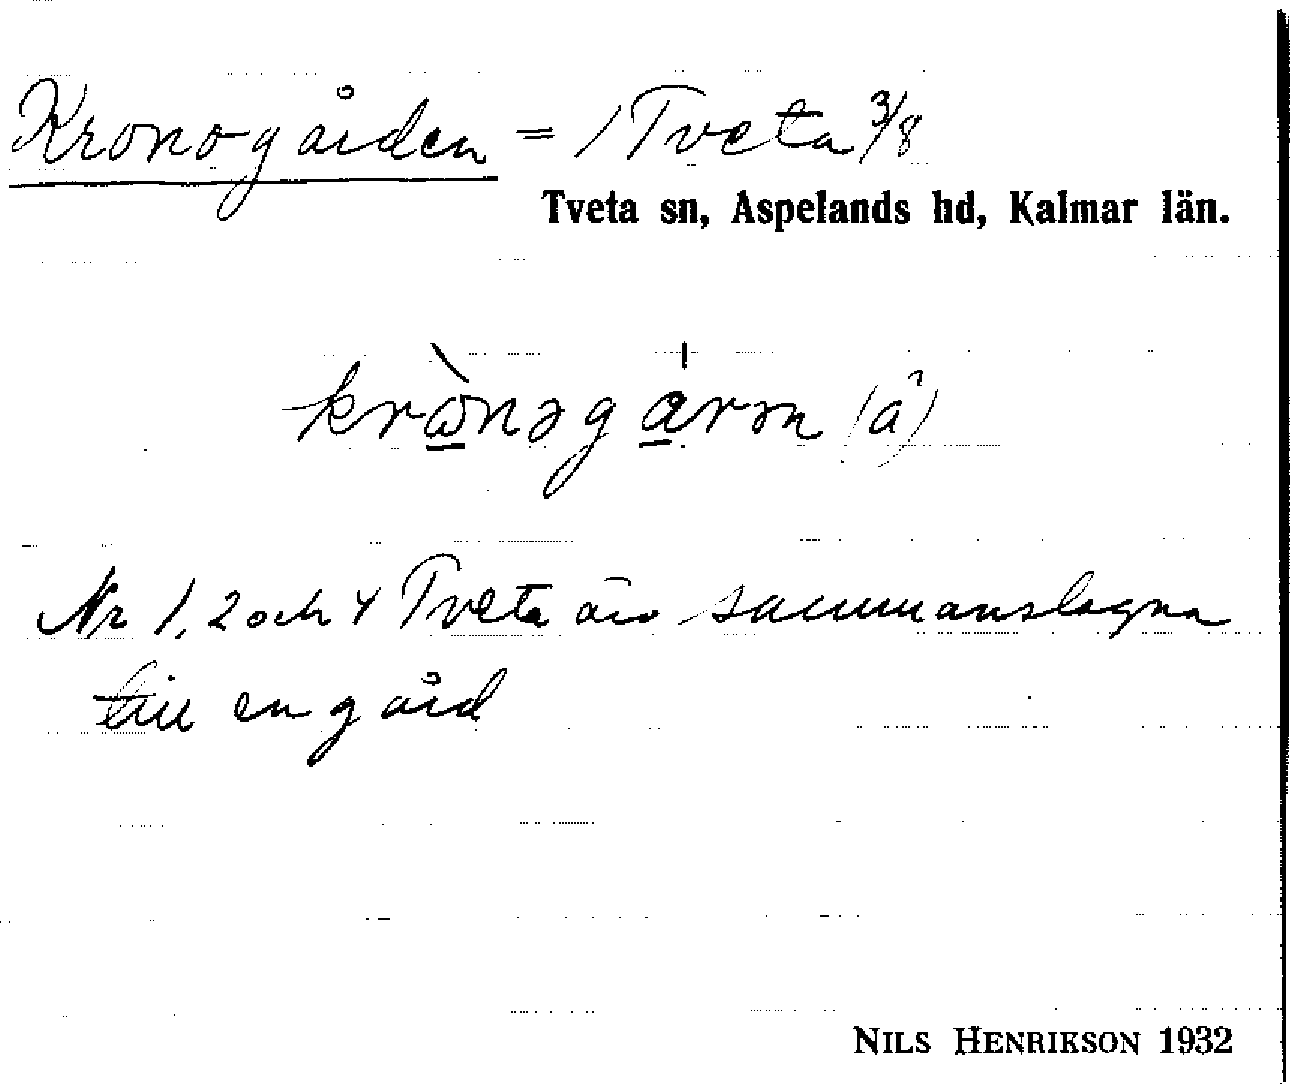 Kronogården = 1 Tveta 3/8
Tveta sn, Aspelands hd, Kalmar län.
krὼ̠nəga̠rən (â)
Nr 1, 2 och 4 Tveta äro sammanslagna
till en gård
NILS HENRIKSON 1932